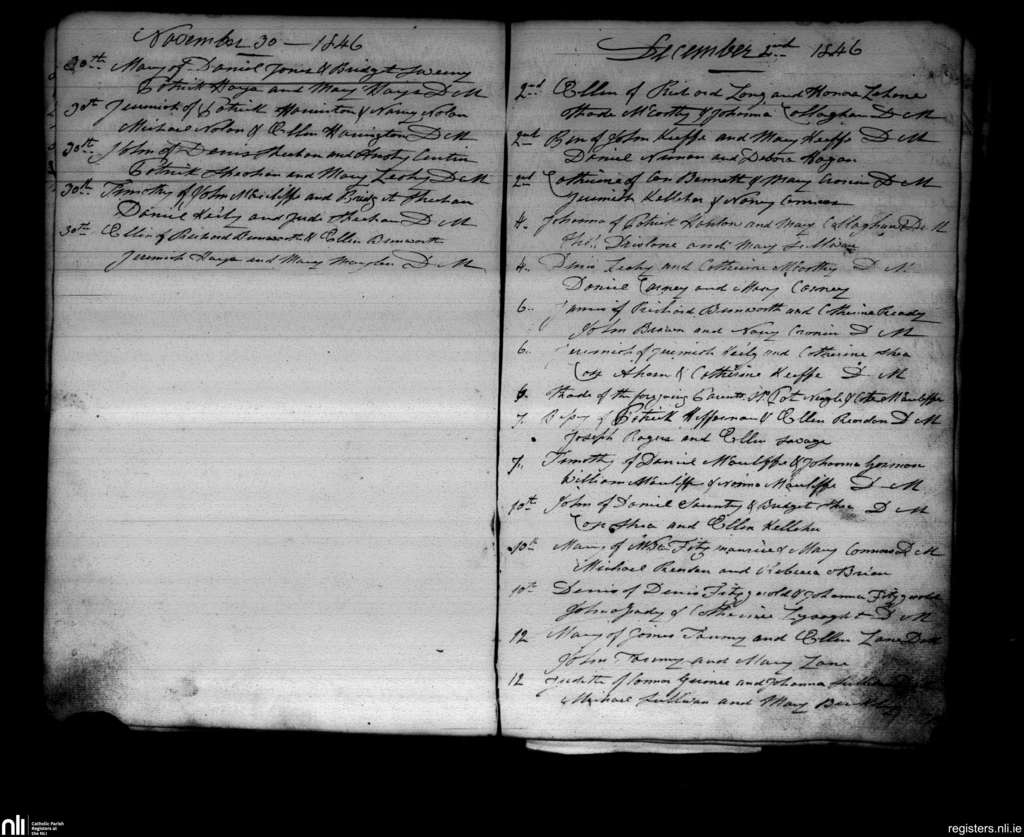 November 30 — 1846
30th Mary of Daniel Jones & Bridget Sweeny
Patrick Hays and Mary Hays D M
30th Jeremiah of Patrick Harrinton & Nancy Nolan
Michael Nolan & Ellen Harington D M
30th John of Denis Sheehan and
Patrick Sheehan and Mary Leahy D M
30th Timothy of John McAuliffe and Bridget Sheehan
Daniel Keily and Jude Sheehan D M
30th Ellen of Richard Bunworth & Ellen Bunworth
Jeremiah Hays and Mary D M
December 2nd 1846
2nd Ellen of Richard Long and Honora
Thade McCarthy & Johanna Callaghan D M
2nd Ben of John Keeffe and Mary Keeffe D M
Daniel Noonan and Debora Hagan
2nd Catherine of Con Bennett & Mary Cronin D M
Jeremiah Kelleher & Nancy
4. Johanna of Patrick and Mary Callaghan D M
and Mary Sullivan
4. Denis Leahy and Catherine McCarthy D M
Daniel Carney and Mary Carney
6.. James of Richard Bunworth and Catherine Ready
John Brown and Nancy Cronin D M
6.. Jeremiah of Jeremiah Keily and Catherine Shea
Ahern & Catherine Keeffe D M
6. Thade of the foregoing Parents Pat Nagle & Cate McAuliffe
7. of Patrick Heffernan & Ellen Reardan D M
Joseph Rogers and Ellen Savage
7.. Timothy of Daniel McAuliffe & Johanna Gorman
William McAuliffe & Norina McAuliffe D M
10th John of Daniel & Bridget Shea D M
Shea and Ellen Kelleher
10th Mary of Wm Fitzmaurice & Mary Connors D M
Michael Reardan and Rebecca OBrien
10th Denis of Denis Fitzgerald & Johanna Fitzgerald
John & Catherine Lysaght D M
12 Mary of James Twomy and Ellen Lane
John Twomy and Mary Lane
12 Judith of Connor and Johanna Sullivan
Michael Sullivan and Mary
nli
Catholic Parish
Registers at
the NLI
registers.nli.ie